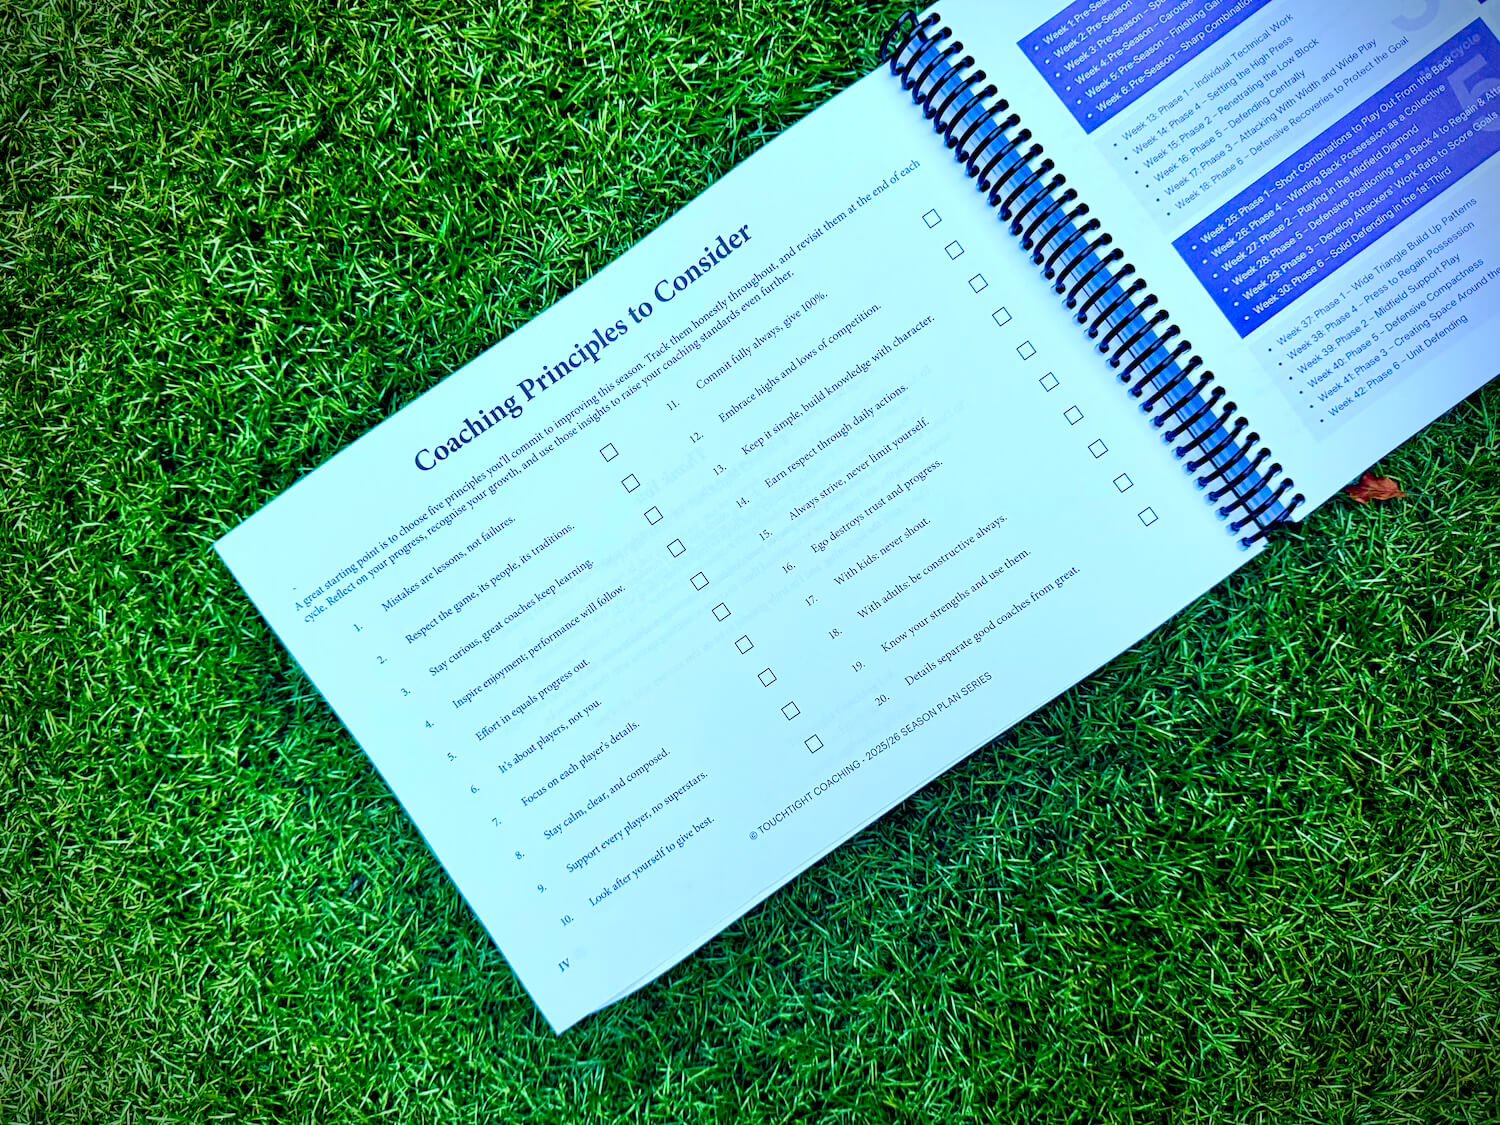 Coaching Principles to Consider
A great starting point is to choose five principles you'll commit to improving this season. Track them honestly throughout, and revisit them at the end of each
cycle. Reflect on your progress, recognise your growth, and use those insights to raise your coaching standards even further.
1. Mistakes are lessons, not failures.
2. Respect the game, its people, its traditions.
3. Stay curious, great coaches keep learning.
4. Inspire enjoyment; performance will follow.
5. Effort in equals progress out.
6. It's about players, not you.
7. Focus on each player's details.
8. Stay calm, clear, and composed.
9. Support every player, no superstars.
10. Look after yourself to give best.
11. Commit fully always, give 100%.
12. Embrace highs and lows of competition.
13. Keep it simple, build knowledge with character.
14. Earn respect through daily actions.
15. Always strive, never limit yourself.
16. Ego destroys trust and progress.
17. With kids: never shout.
18. With adults: be constructive always.
19. Know your strengths and use them.
20. Details separate good coaches from great.
IV
© TOUCHTIGHT COACHING - 2025/26 SEASON PLAN SERIES
Week 1: Pre-Season
Week 2: Pre-Season
Week 3: Pre-Season –
Week 4: Pre-Season – Carousel
Week 5: Pre-Season – Finishing
Week 6: Pre-Season – Sharp
3
Week 13: Phase 1 – Individual Technical Work
Week 14: Phase 4 – Setting the High Press
Week 15: Phase 2 – Penetrating the Low Block
Week 16: Phase 5 – Defending Centrally
Week 17: Phase 3 – Attacking With Width and Wide Play
Week 18: Phase 6 – Defensive Recoveries to Protect the Goal
cycle
5
Week 25: Phase 1 – Short Combinations to Play Out From the Back
Week 26: Phase 4 – Winning Back Possession as a Collective
Week 27: Phase 2 – Playing in the Midfield Diamond
Week 28: Phase 5 – Defensive Positioning as a Back 4 to Regain &
Week 29: Phase 3 – Develop Attackers' Work Rate to Score Goals
Week 30: Phase 6 – Solid Defending in the 1st Third
Week 37: Phase 1 – Wide Triangle Build Up Patterns
Week 38: Phase 4 – Press to Regain Possession
Week 39: Phase 2 – Midfield Support Play
Week 40: Phase 5 – Defensive Compactness
Week 41: Phase 3 – Creating Space Around
Week 42: Phase 6 – Unit Defending